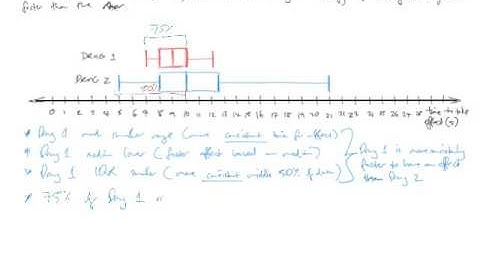 faster than the other
75%
DRUG 1
DRUG 2
50%
0 1 2 3 4 5 6 7 8 9 10 11 12 13 14 15 16 17 18 19 20 21 22 23 24 25 26 27 28 time to take
effect (s)
* Drug 1 smaller range (more consistent time for effect)
* Drug 1 median lower (faster effect based on median)
* Drug 1 IQR smaller (more consistent middle 50% of data)
Drug 1 is more
faster to have an effect
than Drug 2
* 75% of Drug 1